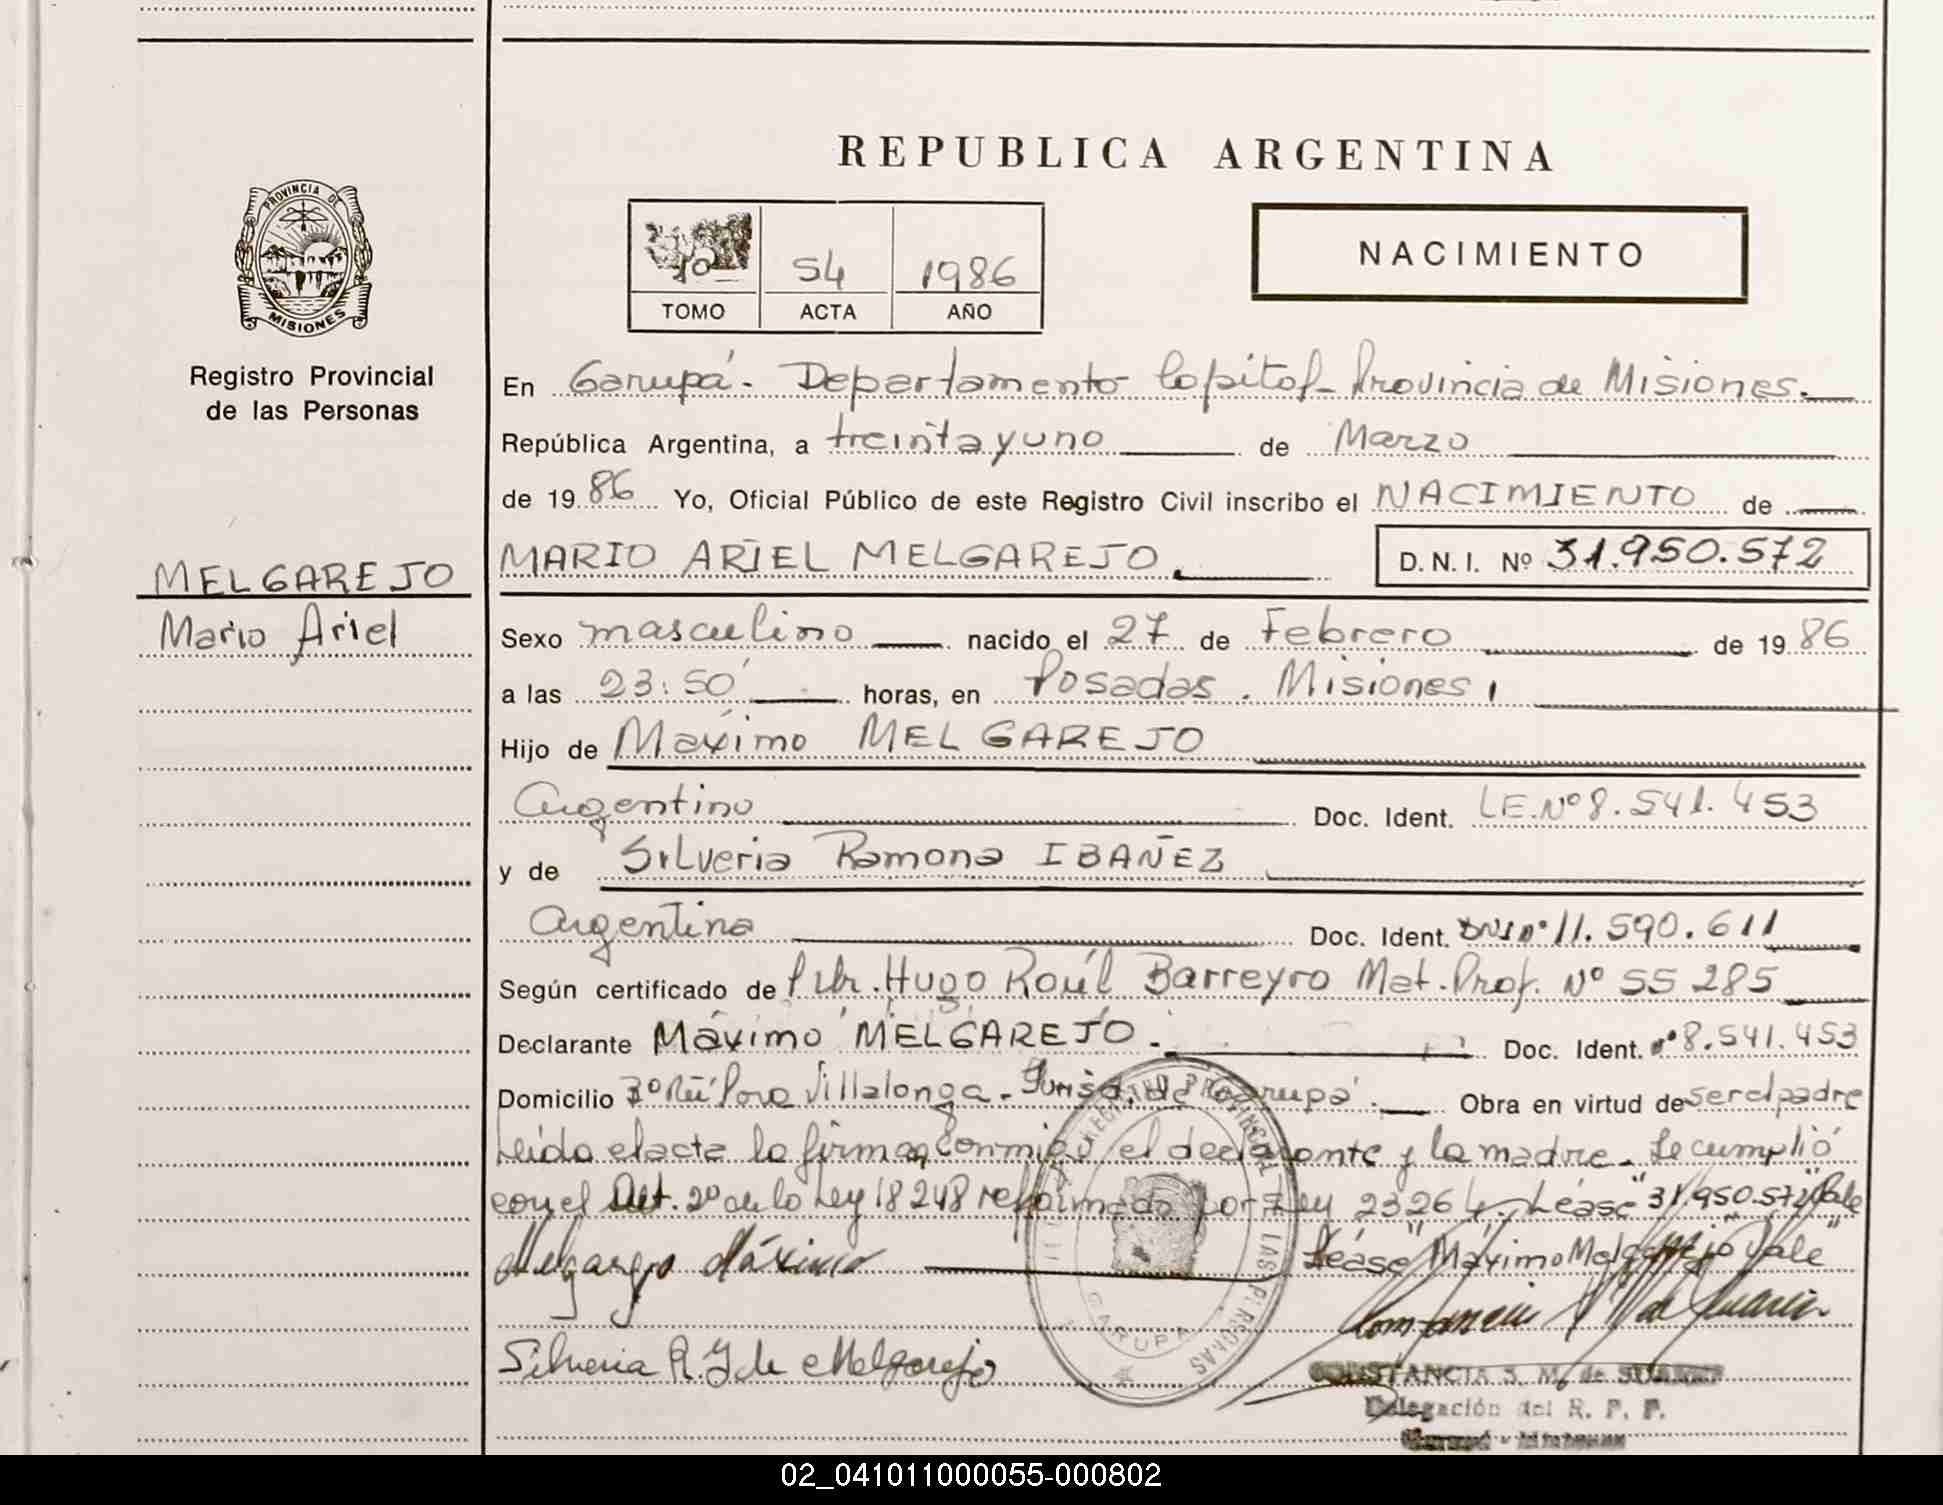 PROVINCIA DE
MISIONES
Registro Provincial
de las Personas
MELGAREJO
Mario Ariel
REPUBLICA ARGENTINA
10 54 1986
TOMO ACTA AÑO
NACIMIENTO
En Garupá. Departamento Capital. Provincia de Misiones.
República Argentina, a treinta y uno de Marzo
de 1986 Yo, Oficial Público de este Registro Civil inscribo el NACIMIENTO de
MARIO ARIEL MELGAREJO. D.N.I. Nº 31.950.572
Sexo masculino nacido el 27 de Febrero de 1986
a las 23:50 horas, en Posadas. Misiones,
Hijo de Máximo MELGAREJO
Argentino Doc. Ident. L.E. Nº 8.541.453
y de Silveria Ramona IBAÑEZ
Argentina Doc. Ident. DNI Nº 11.590.611
Según certificado de Hugo Raúl Barreyro Mat. Prof. Nº 55 285
Declarante Máximo MELGAREJO. Doc. Ident. nº 8.541.453
Domicilio Villalonga. Jurisd. de Garupá. Obra en virtud de ser el padre
Leida el acta la firman conmigo el declarante y la madre. Se cumplió
con el Art. 2º de la Ley 18248 reformada por Ley 23264. Léase "31.950.572" Vale
Melgarejo Máximo Léase "Máximo Melgarejo" Vale"
Silveria R. I de Melgarejo
REGISTRO PROVINCIAL DE LAS PERSONAS
GARUPA
CONSTANCIA S. M. de SUAREZ
Delegación del R. P. P.
02_041011000055-000802